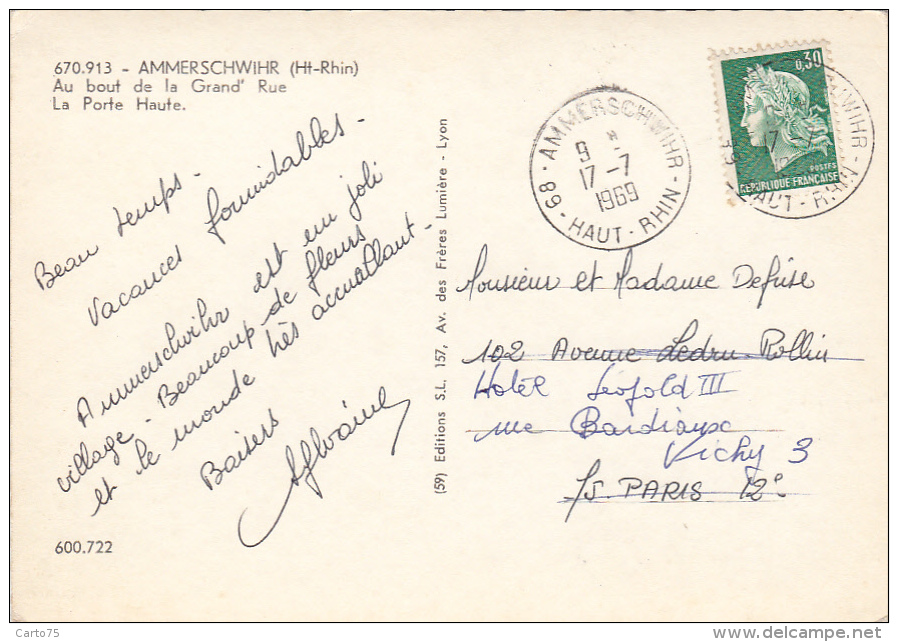 670.913 - AMMERSCHWIHR (Ht-Rhin)
Au bout de la Grand' Rue
La Porte Haute.
Beau temps -
Vacances formidables -
Ammerschwihr est un joli
village - Beaucoup de fleurs
et le monde très accueillant -
Baisers
Sylvaine
600.722
(59) Editions S.L. 157, Av. des Frères Lumière - Lyon
68 - AMMERSCHWIHR - HAUT-RHIN -
9 H
17 - 7
1969
0,30
POSTES
REPUBLIQUE FRANÇAISE
Monsieur et Madame Defrise
102 Avenue Ledru-Rollin
Hotel Léopold III
rue Bardiaux
Vichy 3
75 PARIS 12e
Carto75
www.delcampe.net